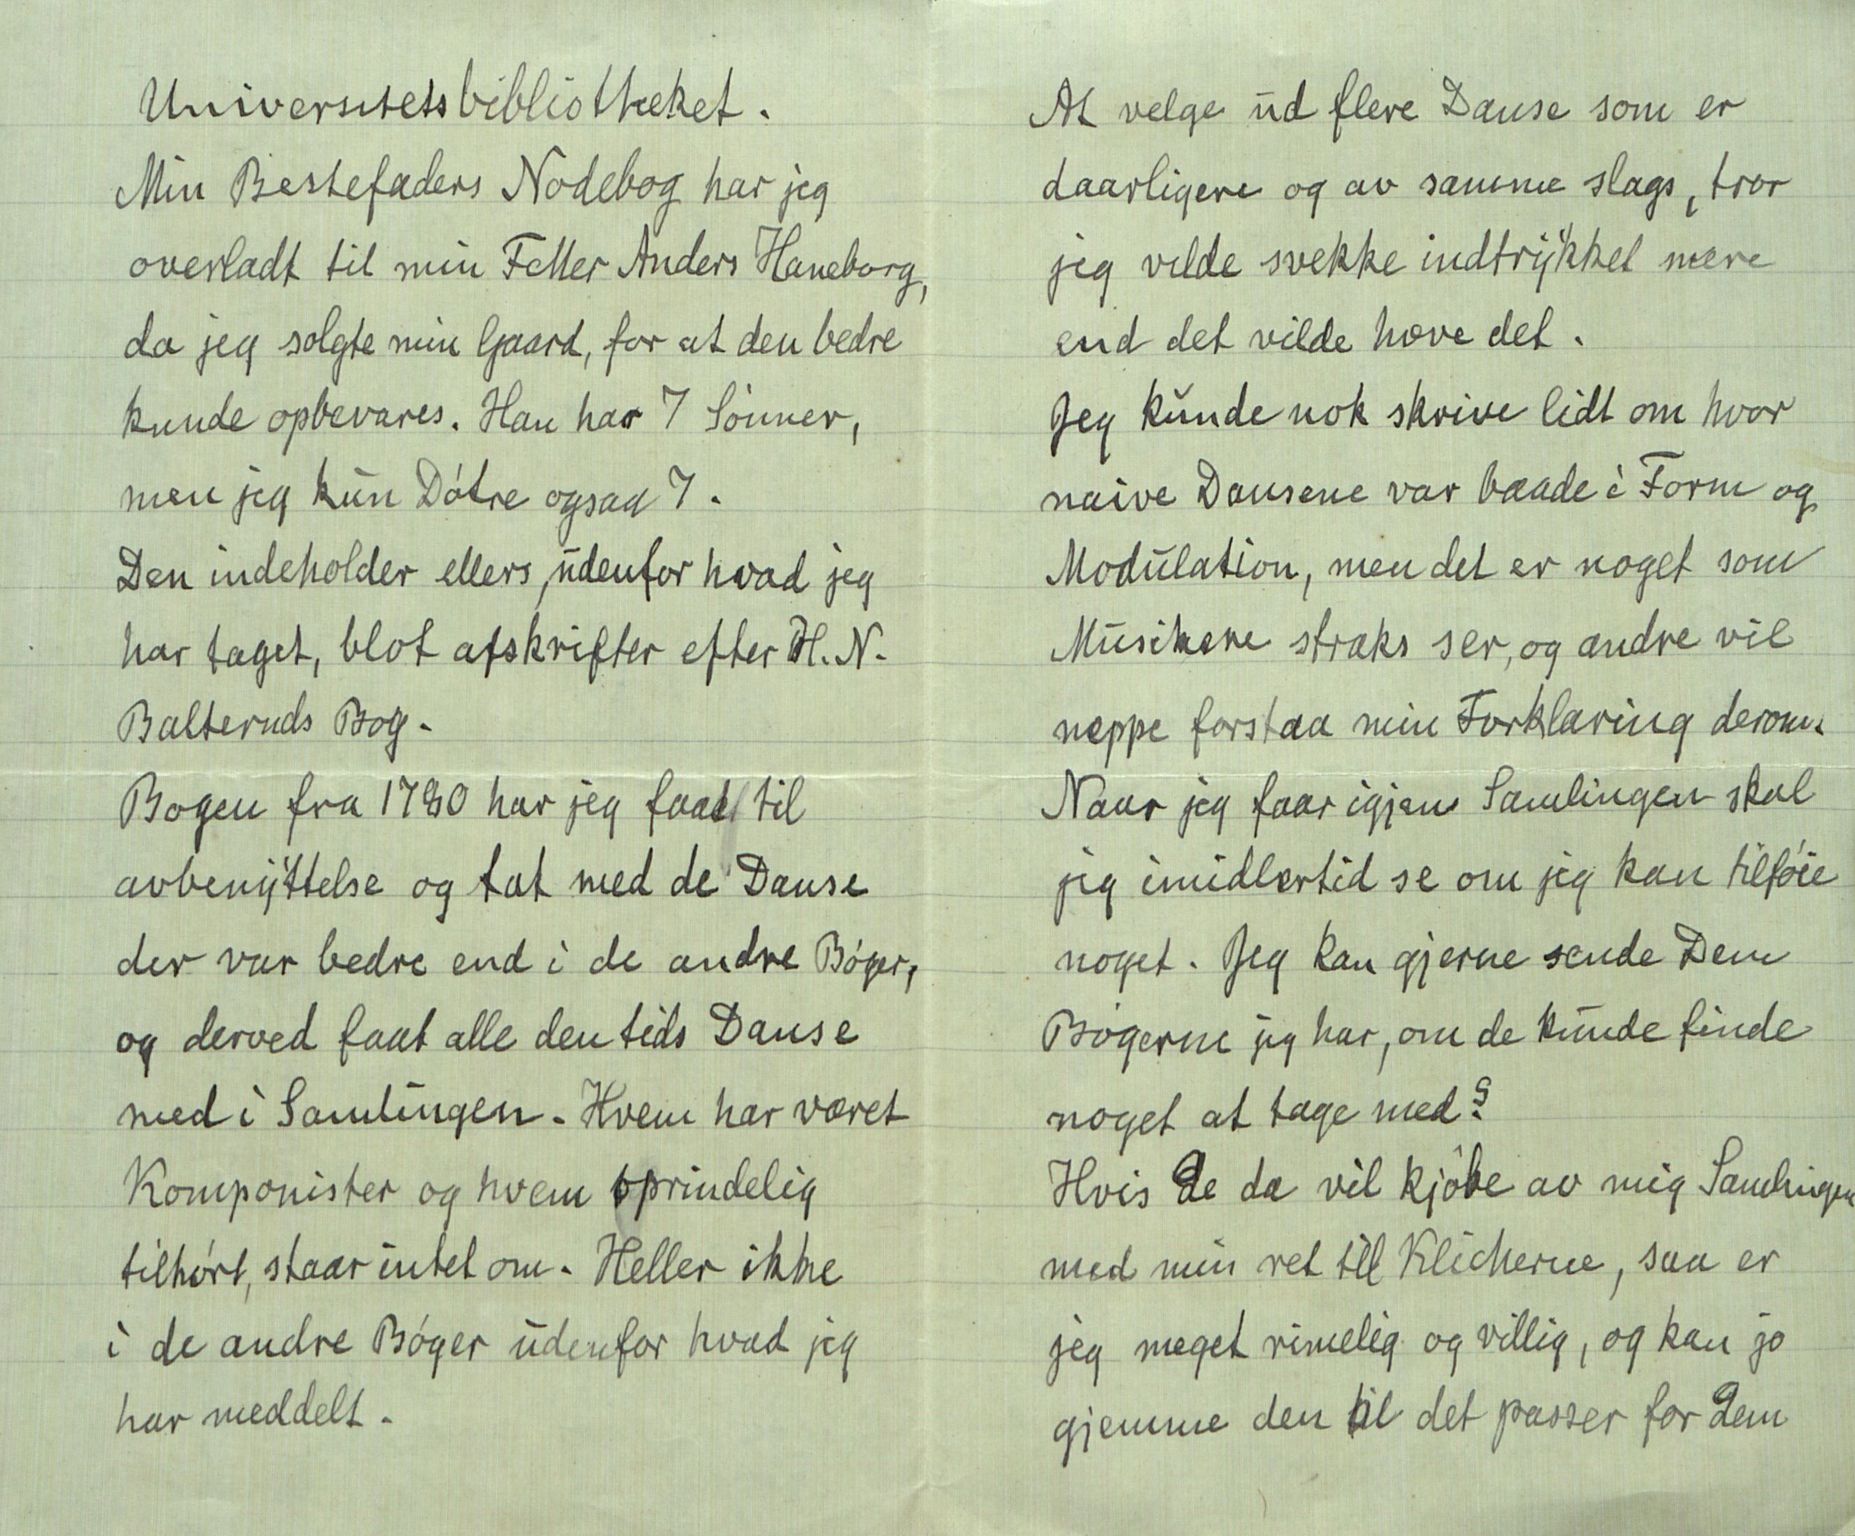 Universitetsbibliotheket.
Min Bestefaders Nodebog har jeg
overladt til min Fetter Anders Haneborg,
da jeg solgte min Gaard, for at den bedre
kunde opbevares. Han har 7 Sönner,
men jeg kun Dótre ogsaa 7.
Den indeholder ellers, udenfor hvad jeg
har taget, blot afskrifter efter H. N.
Balteruds Bog.
Bogen fra 1780 har jeg faaet til
avbenyttelse og tat med de Danse
der var bedre end i de andre Bóger,
og derved faat alle den tids Danse
med i Samlingen. Hvem har været
Komponister og hvem oprindelig
tilhórt, staar intet om. Heller ikke
i de andre Bóger udenfor hvad jeg
har meddelt.
At velge ud flere Danse som er
daarligere og av samme slags, tror
jeg vilde svekke indtrykket mere
end det vilde hæve det.
Jeg kunde nok skrive lidt om hvor
naive Dansene var baade i Form og
Modulation, men det er noget som
Musikere straks ser, og andre vil
neppe forstaa min Forklaring derom.
Naar jeg faar igjen Samlingen skal
jeg imidlertid se om jeg kan tilfóie
noget. Jeg kan gjerne sende Dem
Bógerne jeg har, om de kunde finde
noget at tage med?
Hvis De da vil kjóbe av mig Samlingen
med min ret till Klicherne, saa er
jeg meget rimelig og villig, og kan jo
gjemme den til det passer for Dem